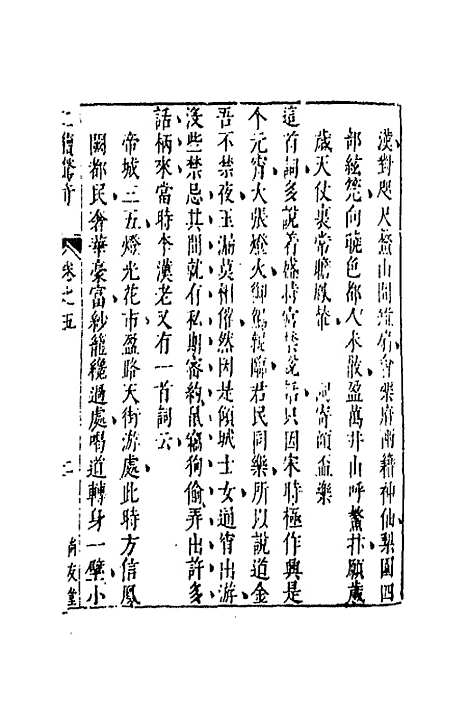 漢對咫尺鰲山開雉扇會樂府兩籍神仙梨園四
部絃筦向曉色都人未散盈萬井山呼鰲抃願歲
歲天仗裏常瞻鳳輦　　詞寄傾盃樂
這首詞多說着盛時宮禁說話只因宋時極作興是
个元宵大張燈火御駕親臨君民同樂所以說道金
吾不禁夜玉漏莫相催然因是傾城士女通宵出游
沒些禁忌其間就有私期密約鼠竊狗偷弄出許多
話柄來當時李漢老又有一首詞云
帝城三五燈光花市盈路天街游處此時方信鳳
闕都民奢華豪富紗籠纔過處喝道轉身一壁小
二續驚奇　卷之五　二　尚友堂